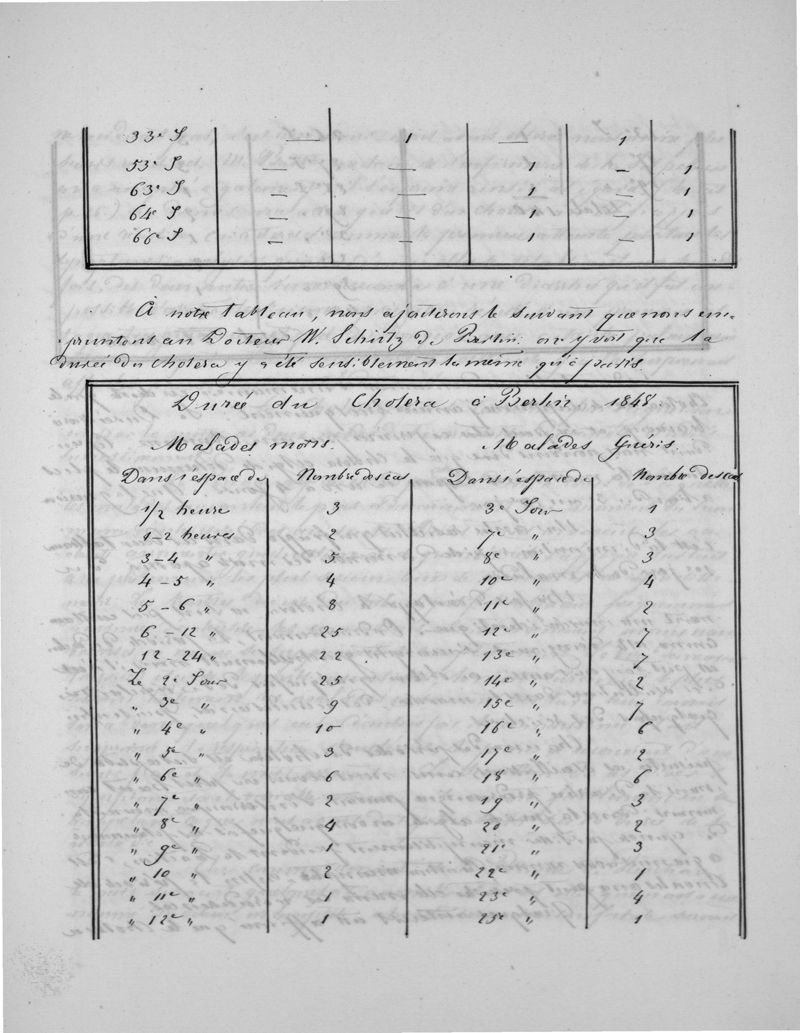 33e J — 1 — 1
53e J — — 1 — 1
63e J — — 1 — 1
64e J — — 1 — 1
66e J — — 1 — 1
À notre tableau, nous ajouterons le suivant que nous em-
pruntons au Docteur W. Schütz de Berlin: on y voit que la
durée du choléra y a été sensiblement la même qu'à paris.
Durée du Choléra à Berlin 1848.
Malades morts. Malades Guéris.
Dans l'espace de Nombre des cas Dans l'espace de Nombre des cas
1/2 heure 3 3e Jour 1
1-2 heures 2 7e " 3
3-4 " 5 8e " 3
4-5 " 4 10e " 4
5-6 " 8 11e " 2
6-12 " 25 12e " 7
12-24 " 22 13e " 7
Le 2e Jour 25 14e " 2
" 3e " 9 15e " 7
" 4e " 10 16e " 6
" 5e " 3 17e " 2
" 6e " 6 18 " 6
" 7e " 2 19 " 3
" 8e " 4 20 " 2
" 9e " 1 21e " 3
" 10 " 2 22e " 1
" 11e " 1 23e " 4
" 12e " 1 25e " 1